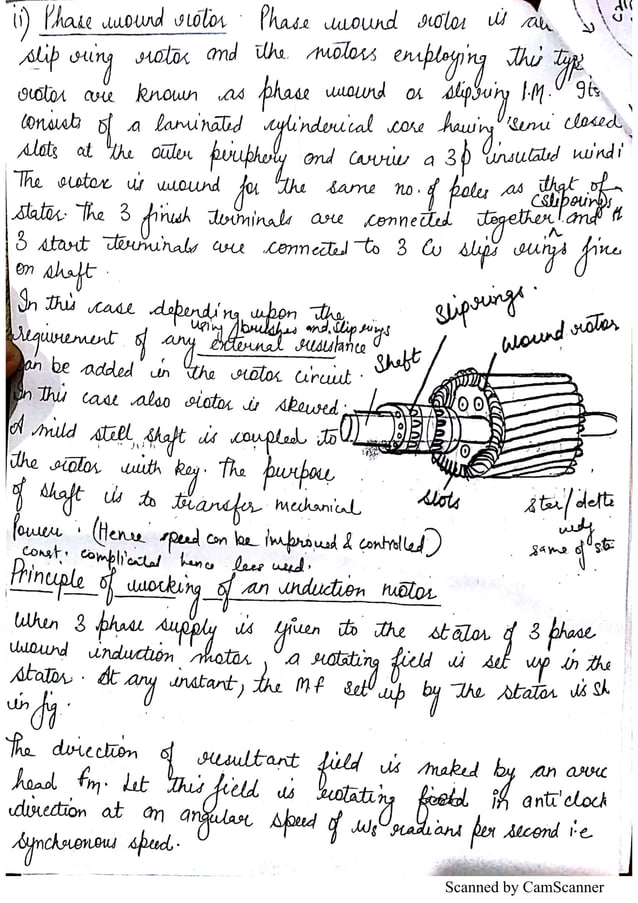 ii) Phase wound rotor : Phase wound rotor is
slip ring rotor and the motors employing this type
rotor are known as phase wound or slipring I.M. Its
consists of a laminated cylinderical core having semi closed
slots at the outer periphery and carries a 3ϕ insulated windi
The rotor is wound for the same no. of poles as that of
stator. The 3 finish terminals are connected together and
(Sliprings
3 start terminals are connected to 3 Cu slips rings
on shaft.
In this case depending upon the
using brushes and slip rings
requirement of any external resistance
can be added in the rotor circuit.
In this case also rotor is skewed.
A mild stell shaft is coupled to
the rotor with key. The purpose
of shaft is to transfer mechanical
Power. (Hence speed can be improved & controlled)
const. complicated hence less used.
Sliprings.
wound rotor
Shaft
slots
star/delta
wdg
same of sta
Principle of working of an induction motor
When 3 phase supply is given to the stator of 3 phase
wound induction motor, a rotating field is set up in the
stator. At any instant, the M f set up by the stator is sh
in fig.
The direction of resultant field is maked by an arrc
head fm. Let this field is rotating in anti'clock
direction at an angular speed of ws radians per second i.e
synchronous speed.
Scanned by CamScanner